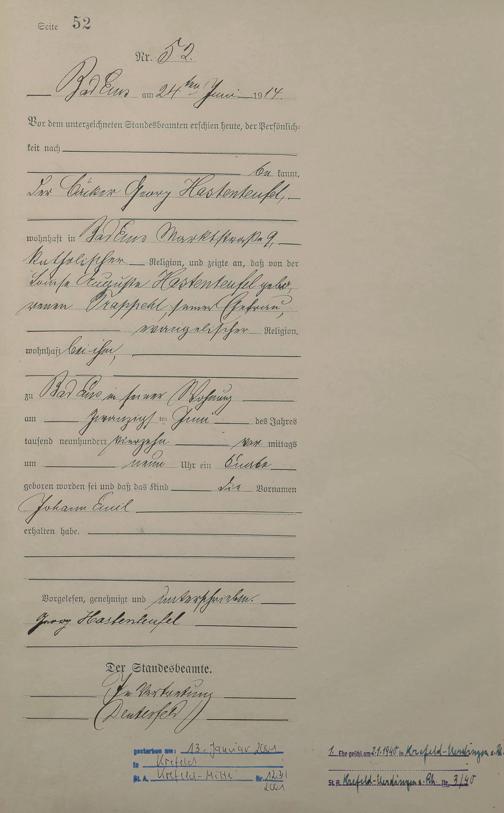 Seite 52
Nr. 52.
Bad Ems am 24ten Juni 1914.
Vor dem unterzeichneten Standesbeamten erschien heute, der Persönlich-
keit nach
be kannt,
der Bäcker Georg Hastenteufel,
wohnhaft in Bad Ems Marktstraße 9,
katholischer Religion, und zeigte an, daß von der
Auguste Hastenteufel gebo-
renen seiner Ehefrau,
evangelischer Religion,
wohnhaft bei ihm,
zu Bad Ems in seiner Wohnung
am zwanzigsten Juni des Jahres
tausend neunhundert vierzehn vor mittags
um neun Uhr ein Knabe
geboren worden sei und daß das Kind die Vornamen
Johann Emil
erhalten habe.
Vorgelesen, genehmigt und unterschrieben.
Georg Hastenteufel
Der Standesbeamte.
In Vertretung
gestorben am: 13. Januar 2001
in Krefeld
St. A. Krefeld-Mitte Nr.
2001
1. Ehe geschl. am 2.1.1940 in Krefeld-Uerdingen a. Rh.
St. A. Krefeld-Uerdingen a. Rh. Nr. 3/40